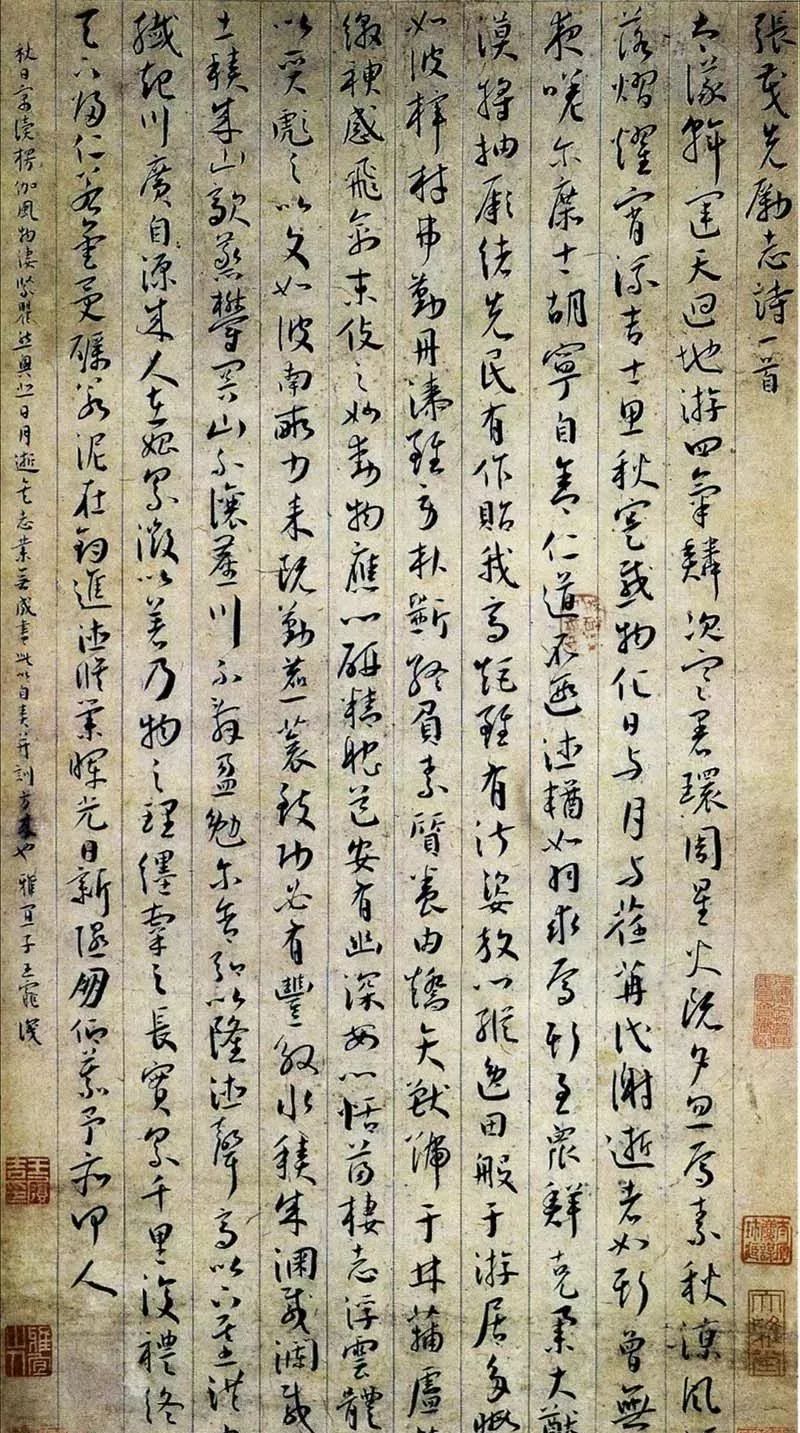 張茂先勵志詩一首
大儀斡運天迴地游四氣鱗次寒暑環周星火既夕忽焉素秋涼風
落熠燿宵流吉士思秋寔感物化日與月與荏苒代謝逝者如斯曾無
夜嗟爾庶士胡寧自舍仁道不遐德輶如羽求焉斯至衆鮮克舉大猷
漠將抽厥緒先民有作貽我高矩雖有淑姿放心縱逸田般于游居多暇
如彼梓材弗勤丹漆雖勞朴斲終負素質養由矯矢獸號于林蒲盧
繳神感飛禽末伎之妙動物應心研精耽道安有幽深安心恬蕩棲志浮雲體
以質彪之以文如彼南畝力耒既勤藨蓘致功必有豐殷水積成淵載瀾載
土積成山歊蒸鬱冥山不讓塵川不辭盈勉爾含弘以隆德聲高以下基洪
纖起川廣自源成人在始累微以著乃物之理纆牽之長實累千里復禮終
天下歸仁若金受礪若泥在鈞進德修業暉光日新隰朋仰慕予亦何人
秋日齋讀楞伽風物淒緊瞿然興日月逝矣志業無成書此以自責并訓方來也雅宜子王寵識